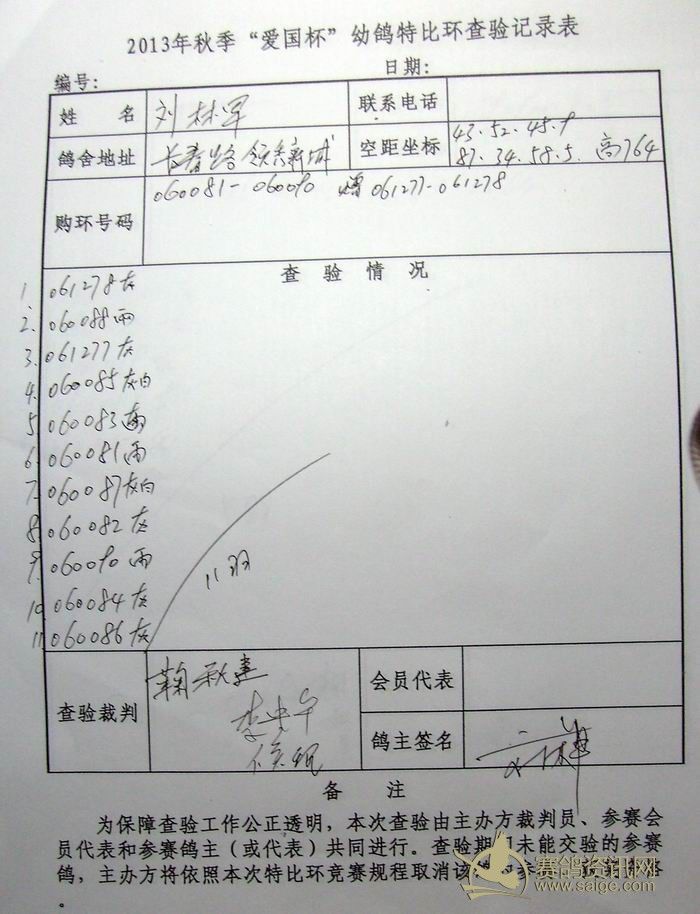 2013年秋季“爱国杯”幼鸽特比环查验记录表
编号: 日期:
姓 名 刘林军 联系电话
鸽舍地址 长春路 新城 空距坐标 43.52.45.9
87.34.58.5. 高764
购环号码 060081-060090 赠061277-061278
查 验 情 况
1. 061278灰
2. 060088雨
3. 061277灰
4. 060085灰白
5. 060083雨
6. 060081雨
7. 060087灰白
8. 060082灰
9. 060090雨
10. 060084灰
11. 060086灰
11羽
查验裁判 鞠秋建 会员代表
鸽主签名
备 注
为保障查验工作公正透明，本次查验由主办方裁判员、参赛会
员代表和参赛鸽主（或代表）共同进行。查验期间未能交验的参赛
鸽，主办方将依照本次特比环竞赛规程取消该
。
赛鸽资讯网
www.saige.com